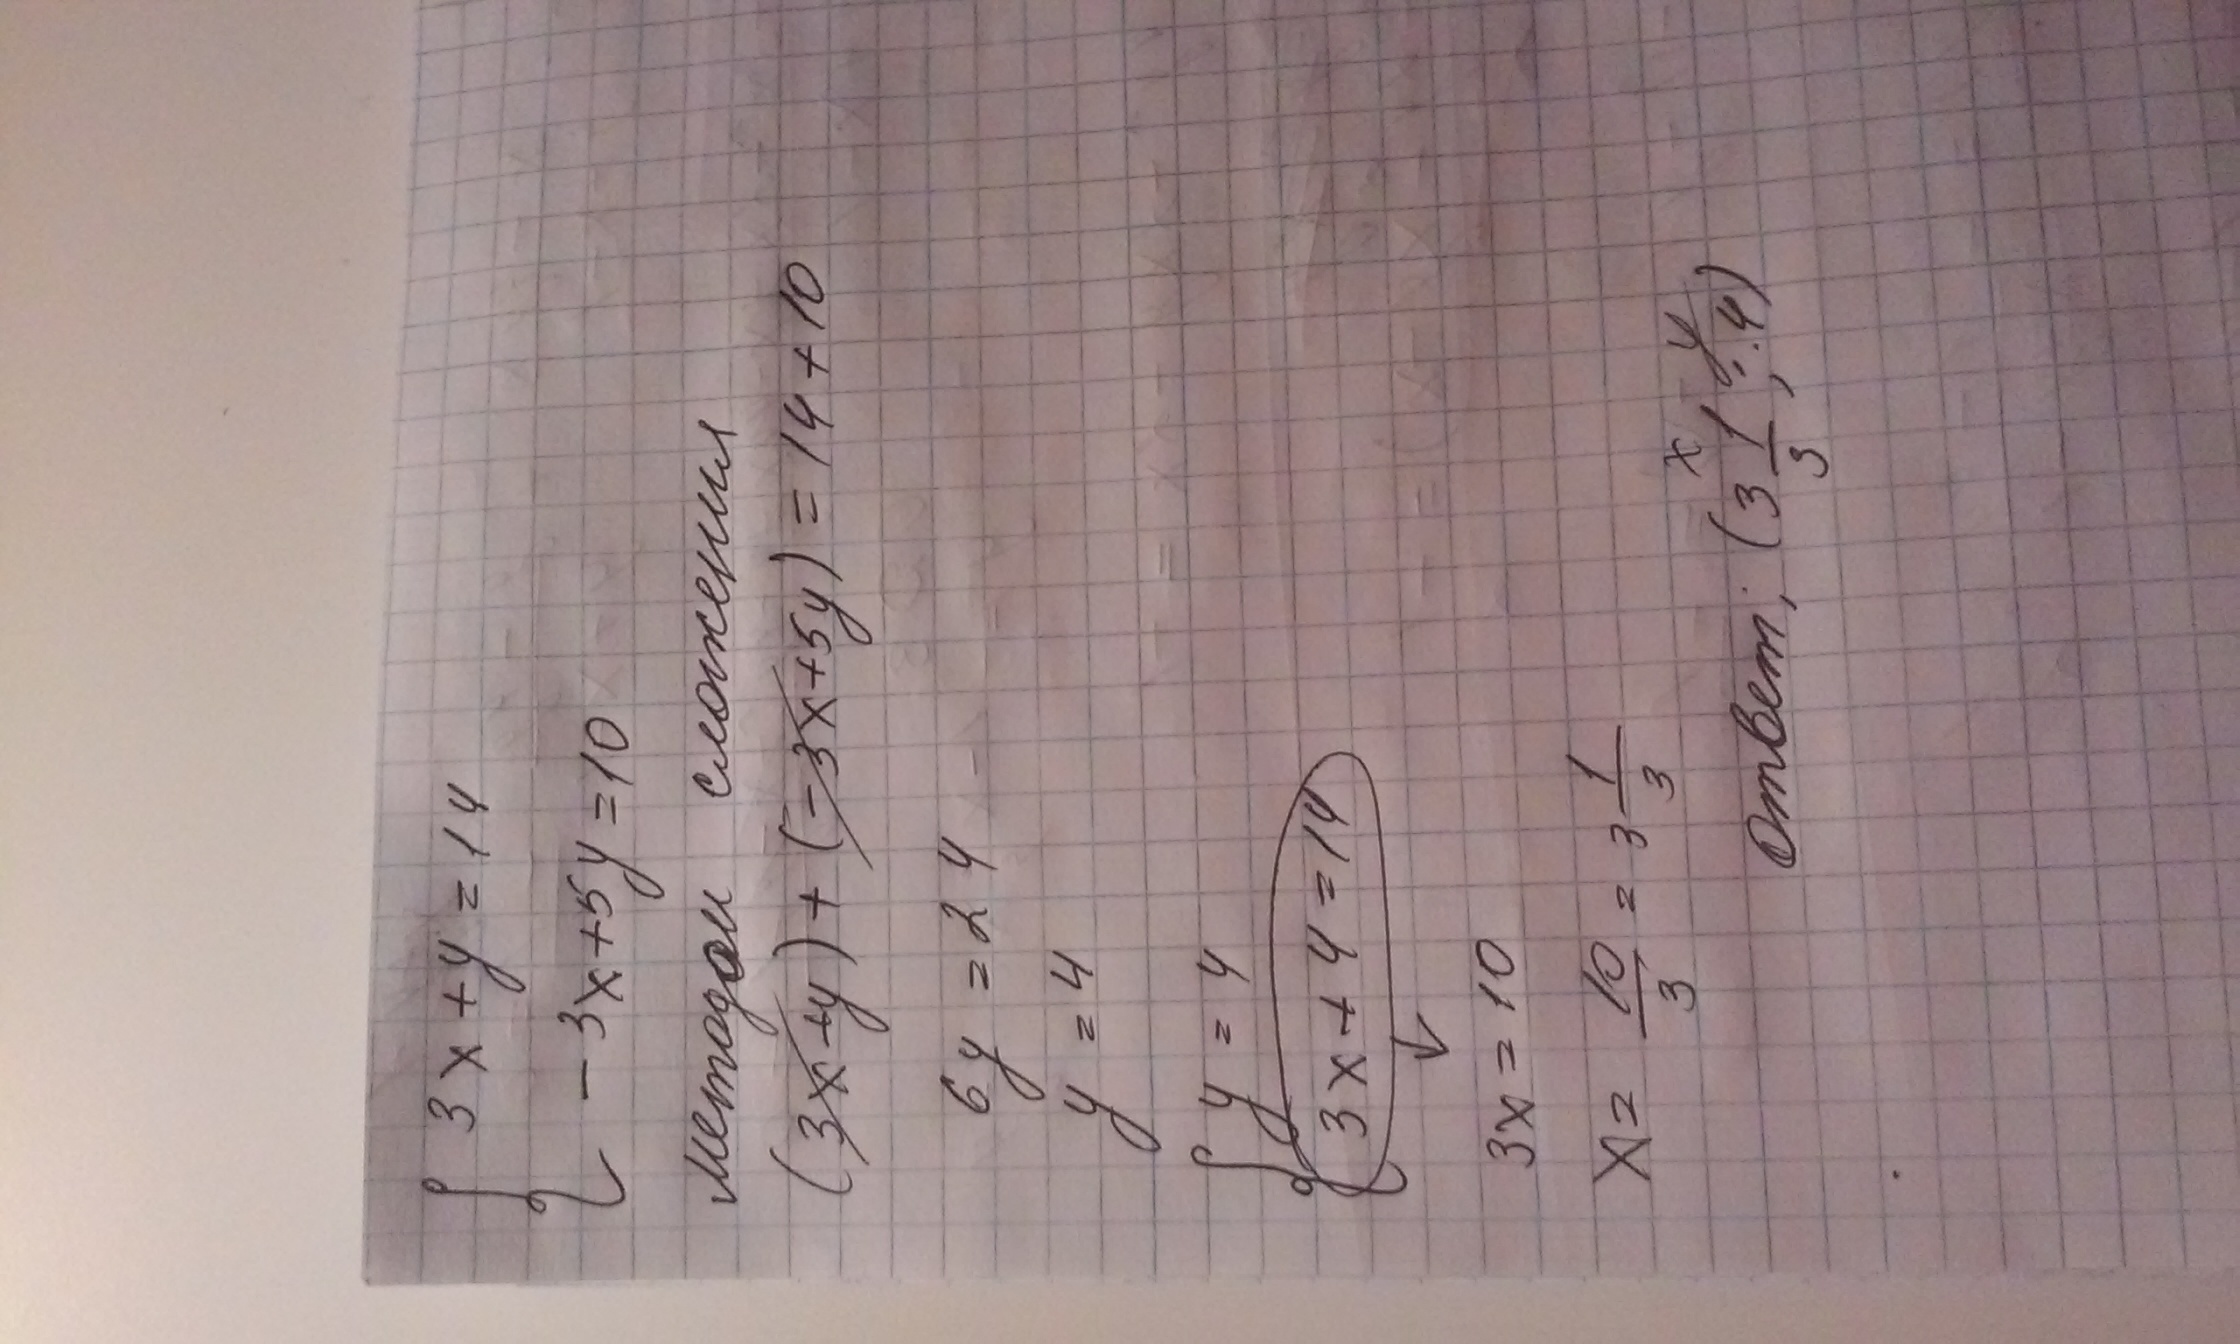 { 3x+y=14
-3x+5y=10
методом сложения
(3x+y)+(-3x+5y)=14+10
6y=24
y=4
{ y=4
3x+4=14
↓
3x=10
x=10/3=3 1/3
x y
Ответ: (3 1/3; 4)